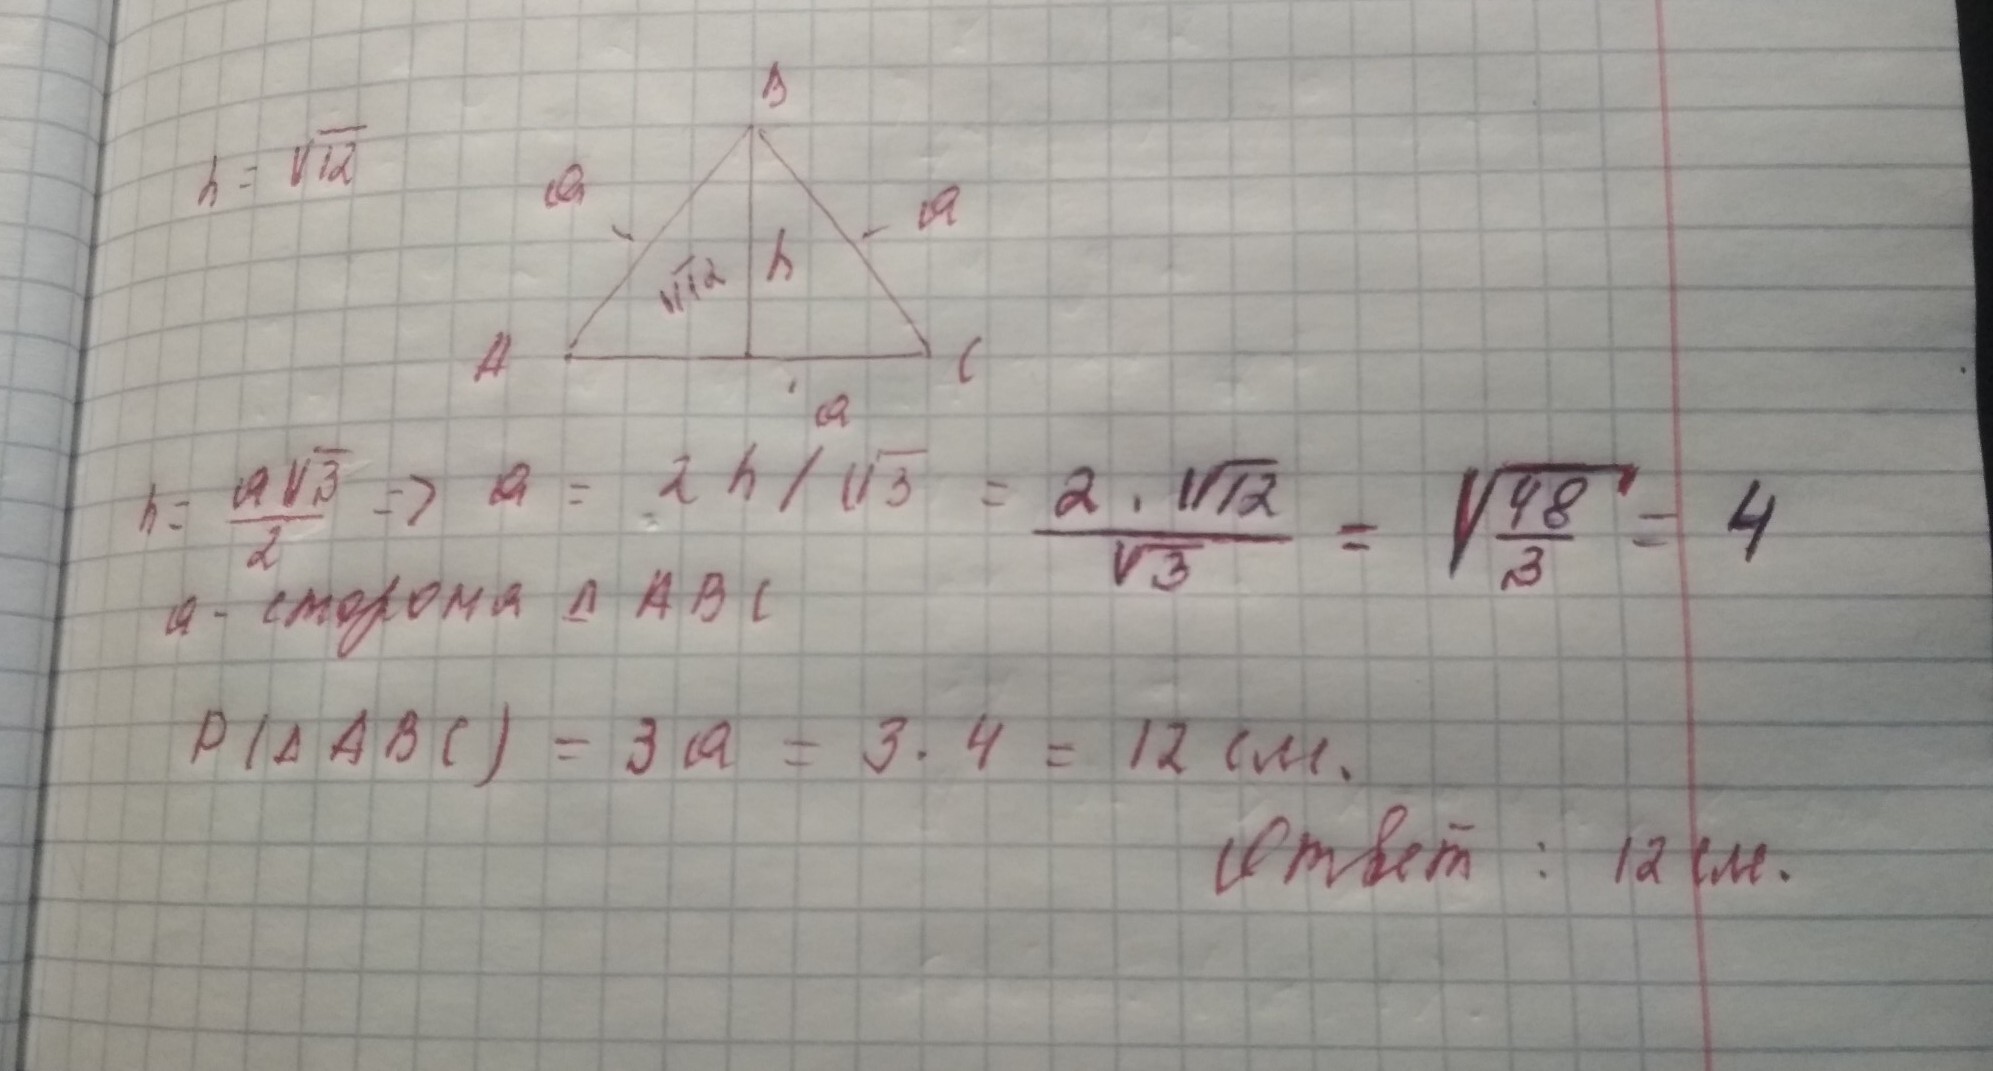 B
h = √12
a
a
√12 h
A
C
a
h = a√3/2 => a = 2h/√3 = 2·√12/√3 = √48/3 = 4
a - сторона Δ ABC
P(Δ ABC) = 3a = 3·4 = 12 см.
Ответ : 12 см.